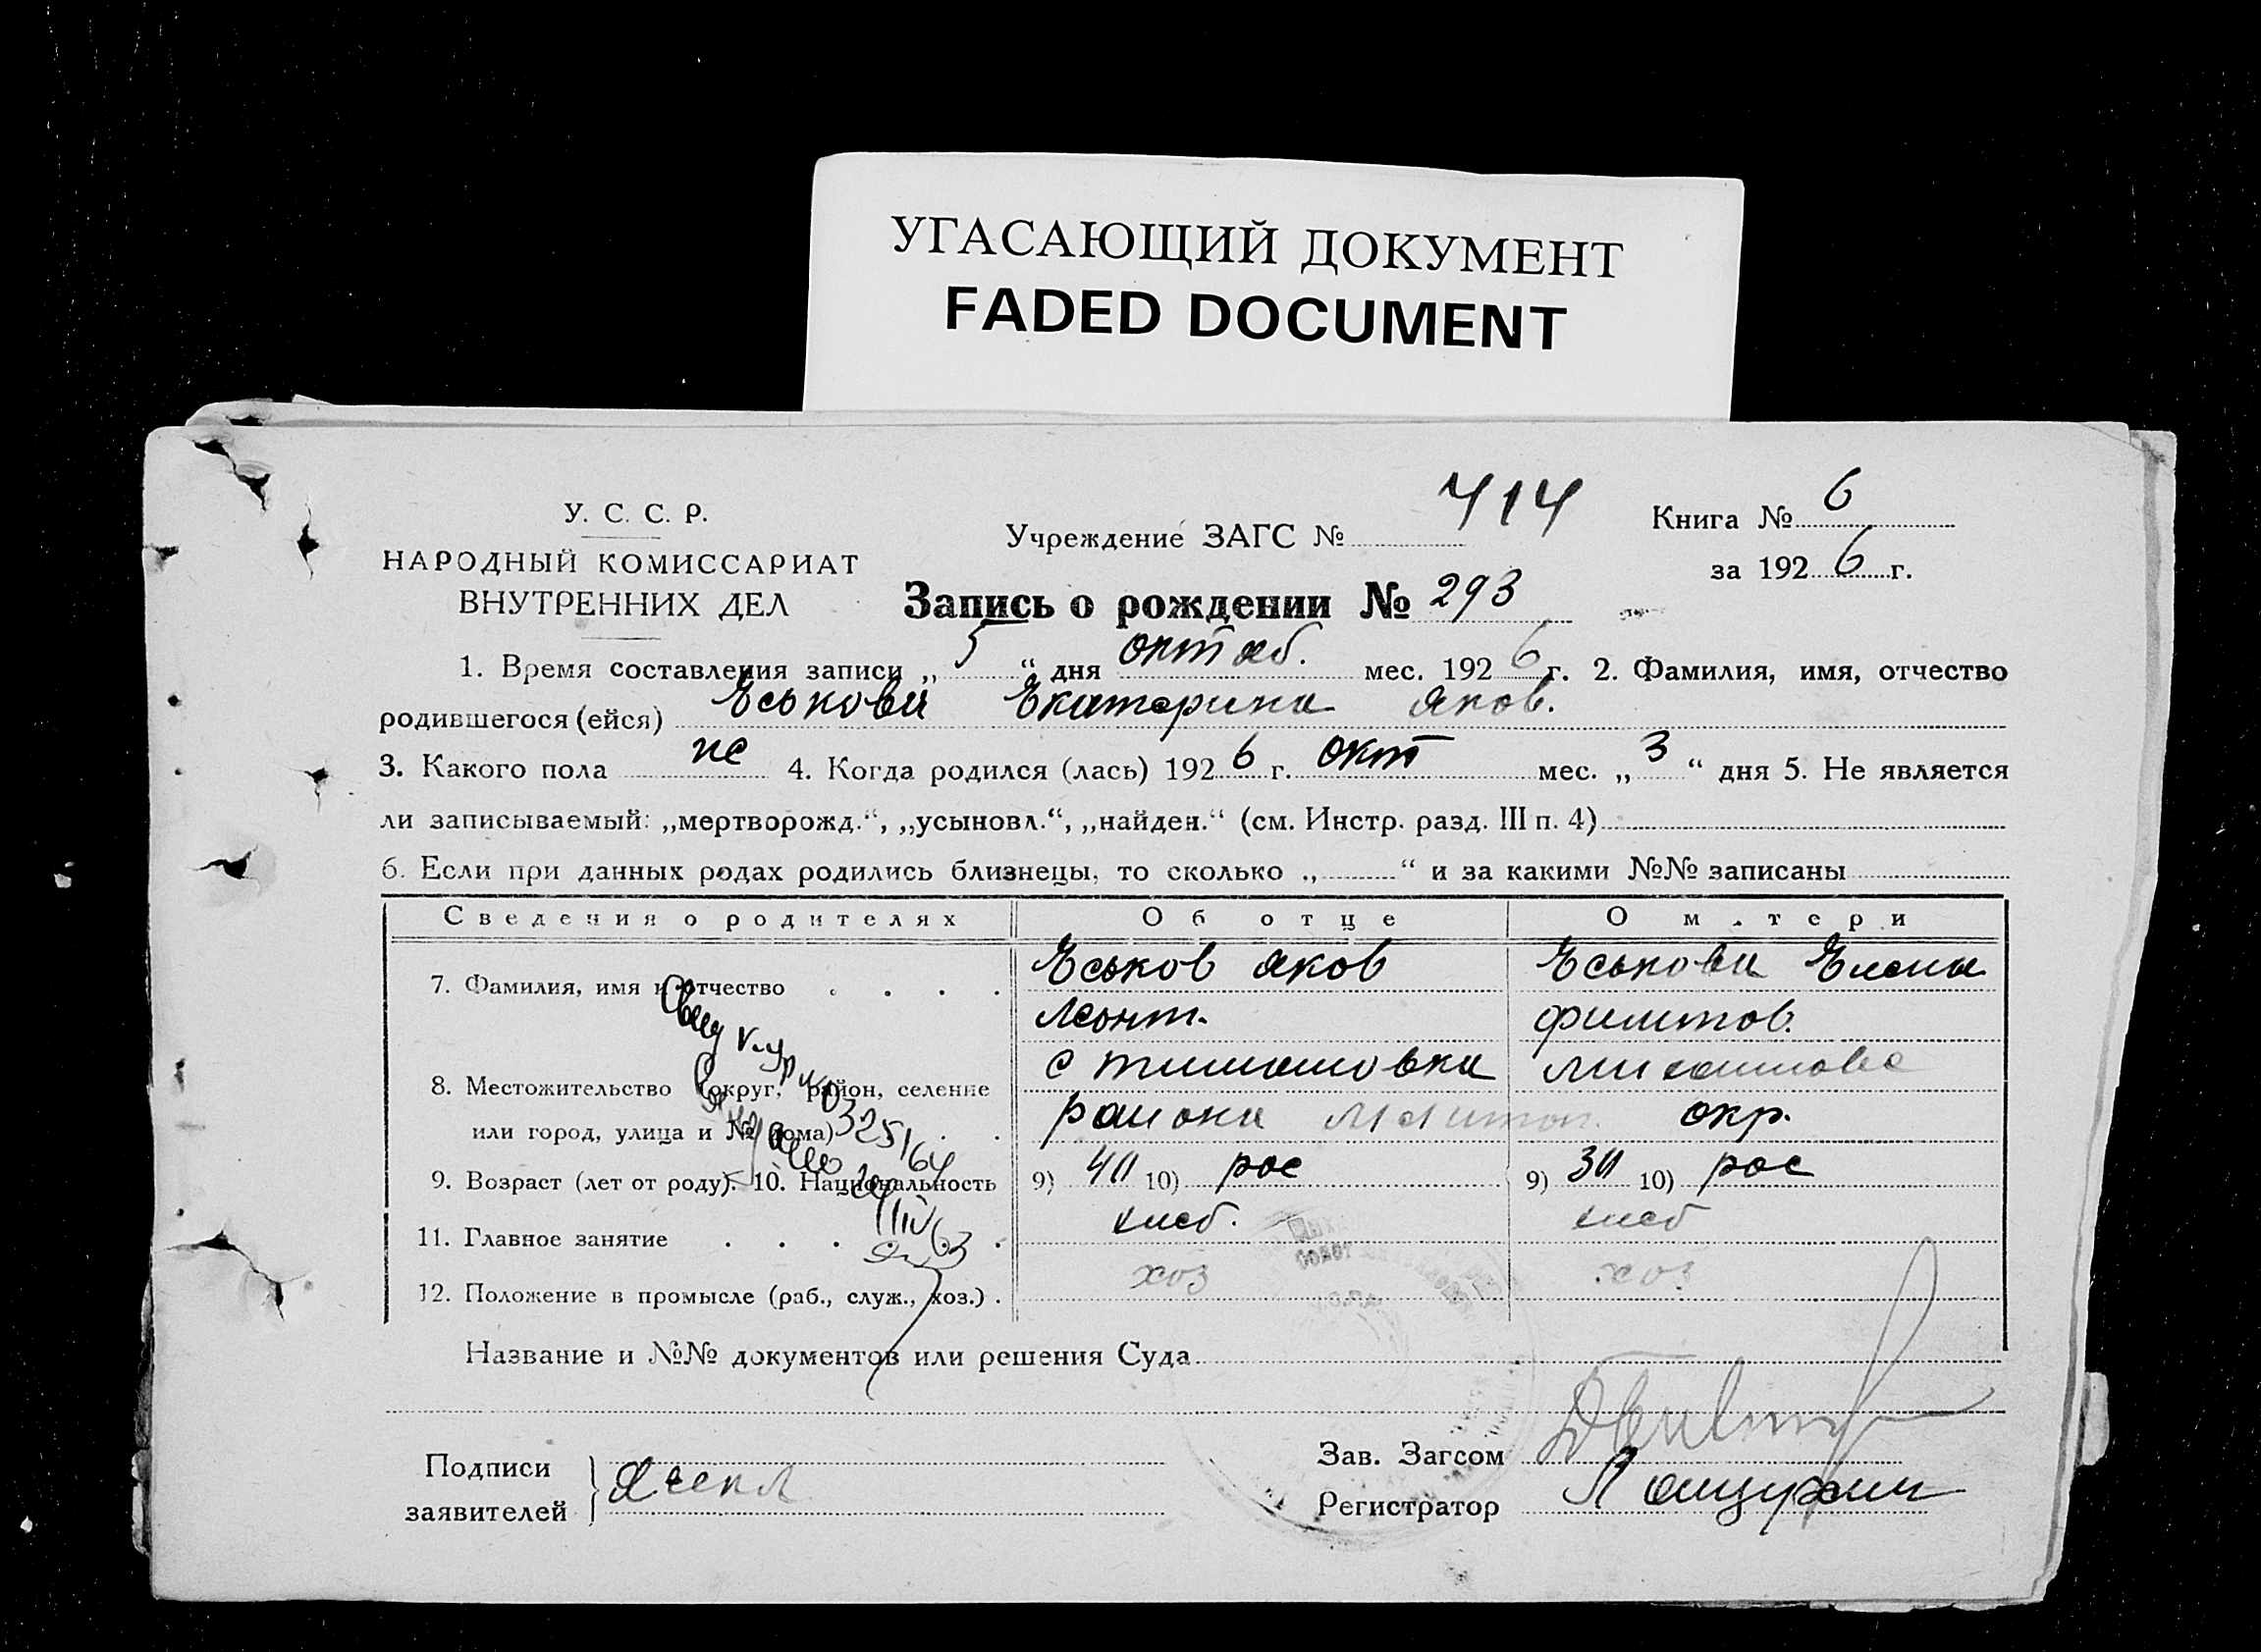 УГАСАЮЩИЙ ДОКУМЕНТ
FADED DOCUMENT
У. С. С. Р.
НАРОДНЫЙ КОМИССАРИАТ
ВНУТРЕННИХ ДЕЛ
Учреждение ЗАГС № 414
Книга № 6
за 1926 г.
Запись о рождении № 293
1. Время составления записи „5“ дня октяб. мес. 1926 г. 2. Фамилия, имя, отчество
родившегося (ейся) Еськова Екатерина Яков.
3. Какого пола же 4. Когда родился (лась) 1926 г. окт мес. „3“ дня 5. Не является
ли записываемый: „мертворожд.“, „усыновл.“, „найден.“ (см. Инстр. разд. III п. 4)
6. Если при данных родах родились близнецы, то сколько „ “ и за какими №№ записаны
Сведения о родителях Об отце О м.тери
7. Фамилия, имя и отчество Еськов Яков Еськова Елена
Леонт. Филипов.
8. Местожительство (округ, район, селение с Тимошовка Михайловс
или город, улица и № дома) района Мелитоп. окр.
9. Возраст (лет от роду). 10. Национальность 9) 40 10) рос 9) 30 10) рос
11. Главное занятие хлеб. хлеб
12. Положение в промысле (раб., служ., хоз.) хоз хоз
Название и №№ документов или решения Суда
Подписи
заявителей
Зав. Загсом
Регистратор